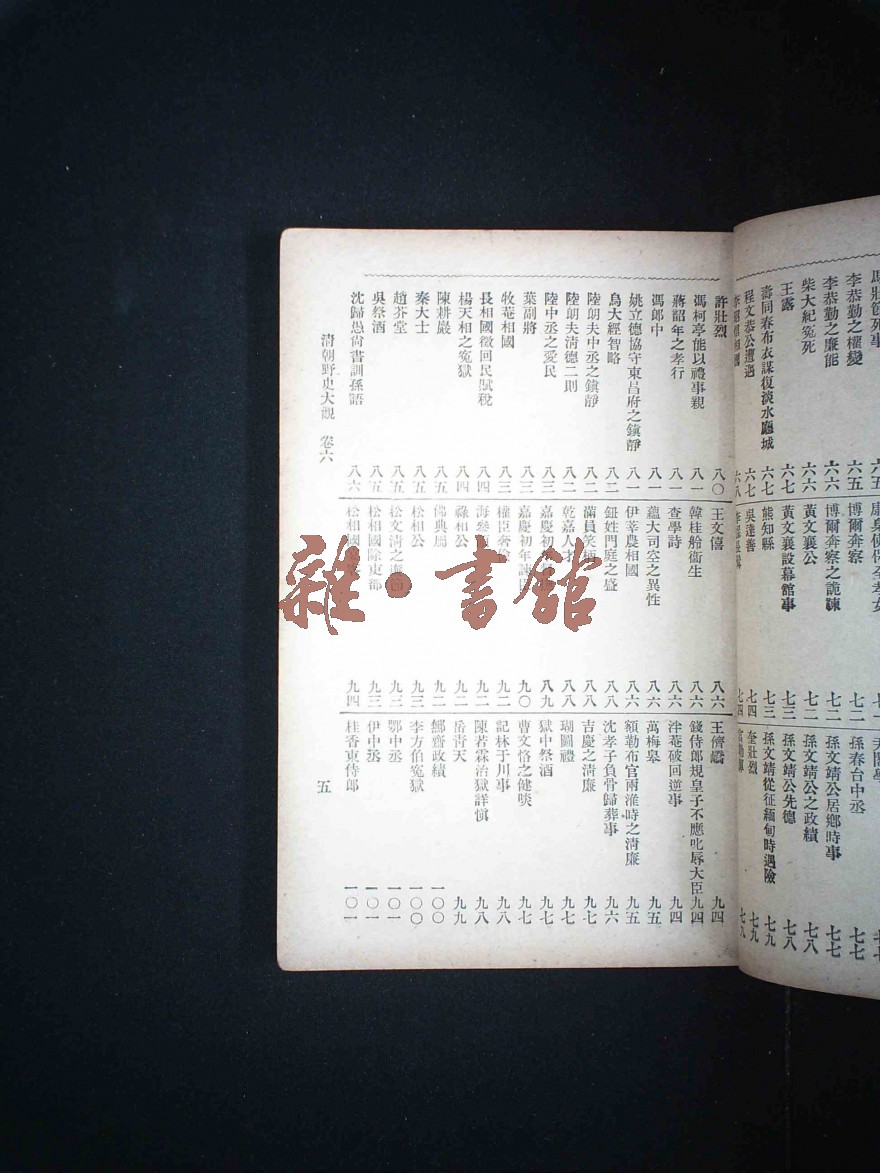 李恭勤之權變 六五
李恭勤之廉能 六六
柴大紀冤死 六六
王露 六七
壽同春布衣謀復淡水廳城 六七
程文恭公遭遇 六七
六八
博爾奔察 七二
博爾奔察之詭諫 七二
黃文襄公 七二
黃文襄設幕館事 七三
熊知縣 七三
吳達善 七四
七四
孫春台中丞 七七
孫文靖公居鄉時事 七七
孫文靖公之政績 七八
孫文靖公先德 七八
孫文靖從征緬甸時遇險 七九
奎壯烈 七九
七九
許壯烈 八〇
馮柯亭能以禮事親 八一
蔣韶年之孝行 八一
馮郎中 八一
姚立德協守東昌府之鎮靜 八一
烏大經智略 八二
陸朗夫中丞之鎮靜 八二
陸朗夫清德二則 八二
陸中丞之愛民 八三
葉副將 八三
牧菴相國 八三
長相國徵回民賦稅 八四
楊天相之冤獄 八四
陳耕巖 八五
秦大士 八五
趙芥堂 八五
吳祭酒 八五
沈歸愚尚書訓孫語 八六
王文僖 八六
韓桂舲衞生 八六
查學詩 八六
蘊大司空之異性 八六
伊莘農相國 八六
鈕姓門庭之盛 八八
滿員笑柄 八八
乾嘉人才 八八
嘉慶初 八九
嘉慶初年諫臣 九〇
權臣奢 九二
海參 九二
祿相公 九二
佛典局 九二
松相公 九三
松文清之 九三
松相國除吏部 九三
松相國 九四
王儕嶠 九四
錢侍郎規皇子不應叱辱大臣 九四
泮菴破回逆事 九四
萬梅皋 九五
額勒布官兩淮時之清廉 九五
沈孝子負骨歸葬事 九六
吉慶之清廉 九七
瑚圖禮 九七
獄中祭酒 九七
曹文恪之健啖 九七
記林于川事 九八
陳若霖治獄詳慎 九八
岳青天 九九
鄉齋政績 一〇〇
李方伯冤獄 一〇〇
鄂中丞 一〇一
伊中丞 一〇一
桂香東侍郎 一〇一
清朝野史大觀 卷六
五
雜·書館